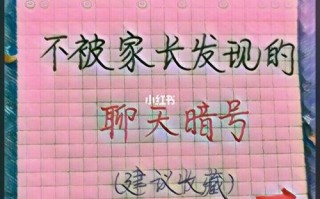 不被家长发现的
小红书
聊天暗号
(建议收藏)